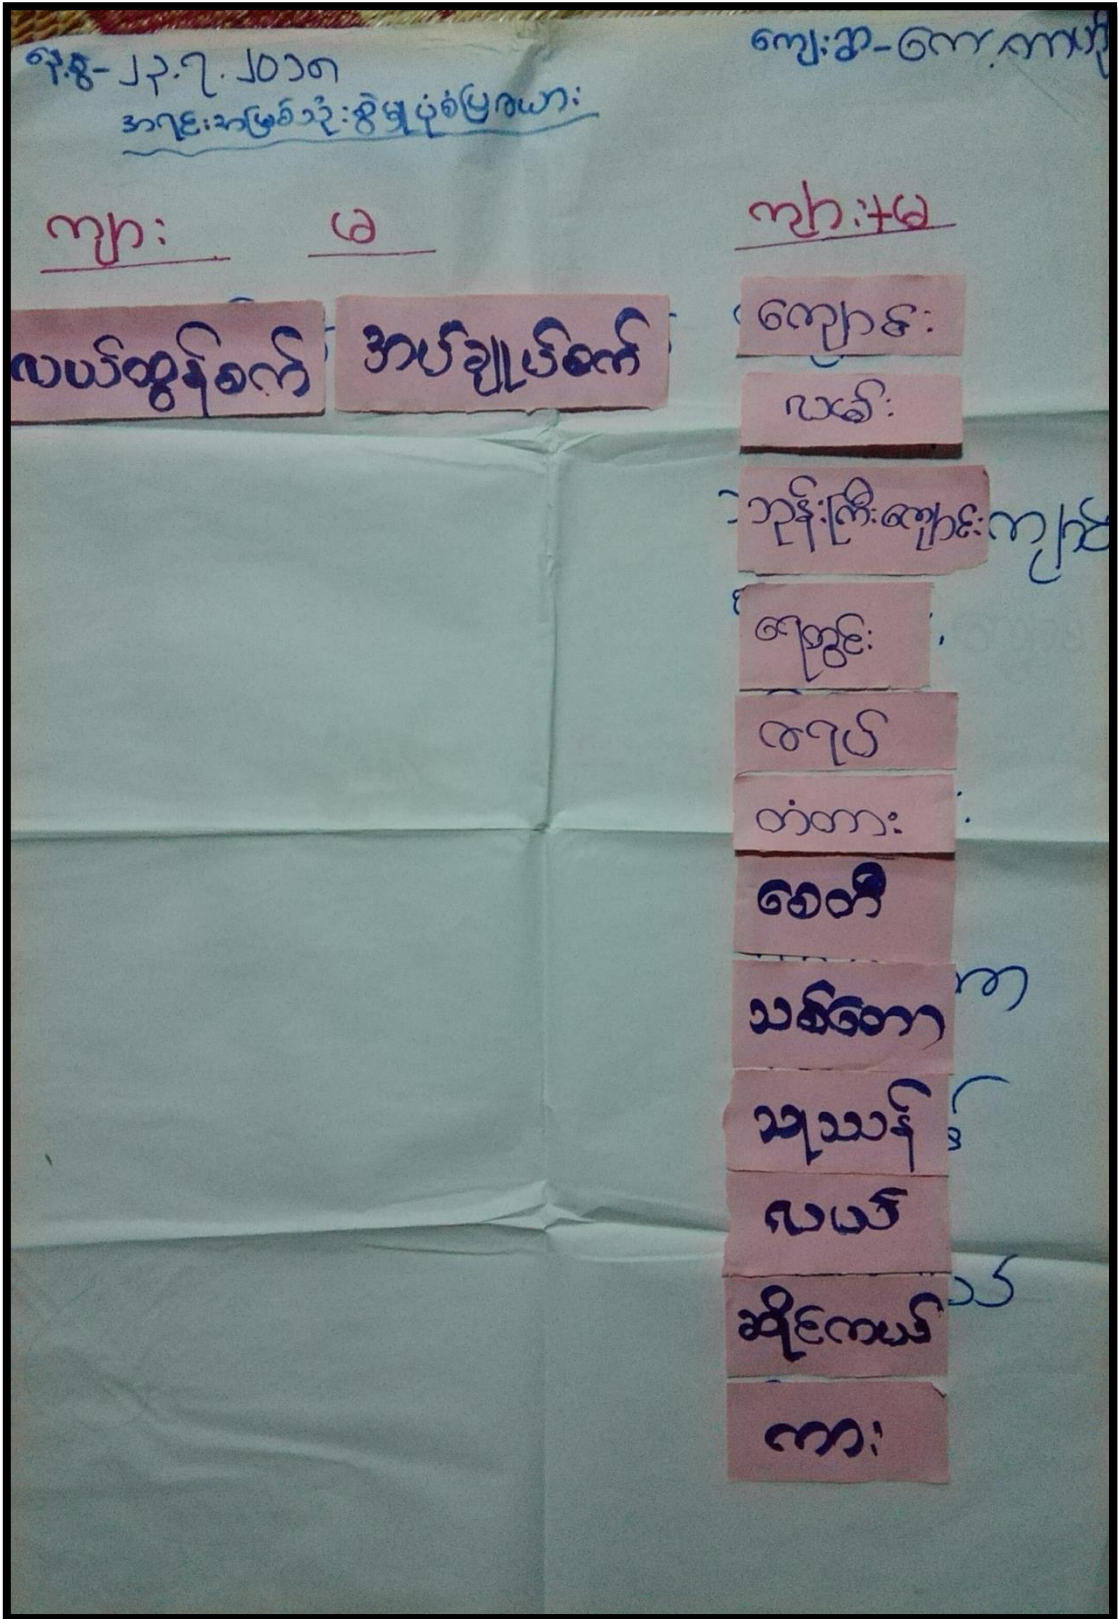 နေ့စွဲ- ၂၃.၇.၂၀၁၈ ကျေးရွာ-
အရင်းအမြစ်သုံးစွဲမှုပုံစံပြဇယား
ကျား မ ကျား+မ
လယ်ထွန်စက် အပ်ချုပ်စက် ကျောင်း
လမ်း
ဘုန်းကြီးကျောင်း
ရေတွင်း
ဇရပ်
တံတား
စေတီ
သစ်တော
သုဿန်
လယ်
ဆိုင်ကယ်
ကား